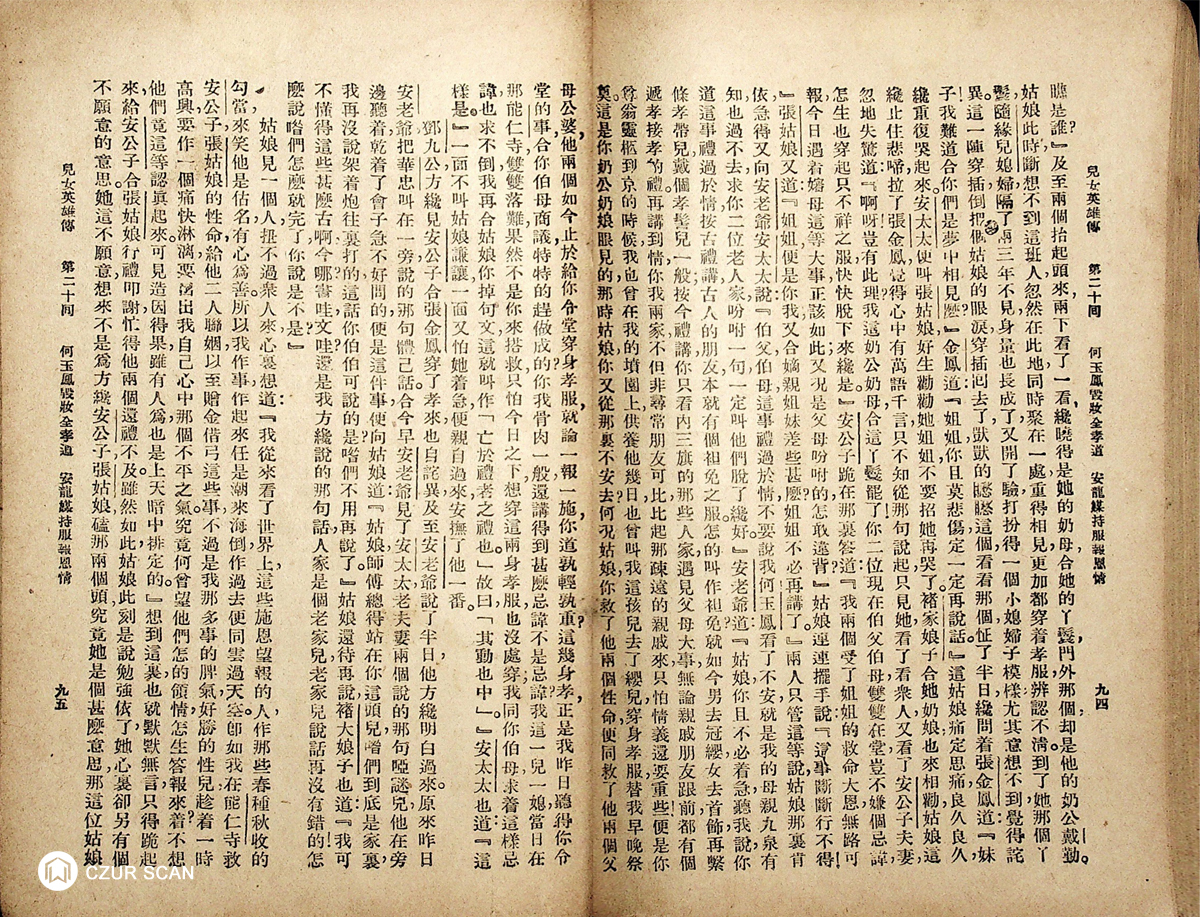 兒女英雄傳　第二十回　何玉鳳毀妝全孝道　安龍媒持服報恩情　九四
瞧是誰?』及至兩個抬起頭來,兩下看了一看,纔曉得是她的奶母合她的丫鬟,門外那個却是他的奶公戴勤。
姑娘此時斷想不到這班人忽然在此地同時聚在一處,重得相見,更加都穿着孝服,辨認不清;到了她那個丫
鬟隨緣兒媳婦,隔了兩三年不見,身量也長成了,又開了臉,打扮得一個小媳婦子模樣,尤其意想不到,覺得詫
異。這一陣穿插,倒把個姑娘的眼淚穿插回去了,獃獃的瞧瞧這個,看看那個,怔了半日,纔問着張金鳳道:『妹
子!我難道合你們是夢中相見麼?』金鳳道:『姐姐,你且莫悲傷,定一定再說話。』這姑娘痛定思痛,良久良久,
纔重復哭起來。安太太便叫張姑娘好生勸勸她姐姐,不要招她再哭了。褚家娘子合她奶娘也來相勸,姑娘這
纔止住悲啼,拉了張金鳳,覺得心中有萬語千言,只不知從那句說起,只見她看了看衆人,又看了安公子夫妻,
忽地失驚道:『啊呀!豈有此理!我這奶公奶母合這丫鬟罷了,你二位現在伯父伯母雙雙在堂,豈不嫌個忌諱,
怎生也穿起只不祥之服?快快脫下來纔是。』安公子跪在那裏答道:『我兩個受了姐姐的救命大恩,無路可
報,今日遇着嬸母這等大事,正該如此;又況是父母吩咐的,怎敢違背?』姑娘連連擺手,說:『這事斷斷行不得!
』張姑娘又道:『姐姐便是你我又合嫡親姐妹差些甚麼?姐姐不必再講了。』兩人只管這等說,姑娘那裏肯
依,急得又向安老爺安太太說:『伯父伯母,這事禮過於情,不要說我何玉鳳看了不安,就是我的母親九泉有
知也過不去。求你二位老人家吩咐一句,一定叫他們脫了纔好。』安老爺道:『姑娘,你且不必着急,聽我說。你
道這事禮過於情,按古禮講,古人的朋友本就有個袒免之服,怎的叫作袒免?就如今男去冠纓,女去首飾,再繫
條孝帶兒,戴個孝髻兒一般。按今禮講,你只看內三旗的那些人家,遇見父母大事,無論親戚朋友跟前,都有個
遞孝接孝的禮。再講到情,你我兩家不但非尋常朋友可比,比起那疎遠的親戚來,只怕情義還要重些,便是你
尊翁靈柩到京的時候,我也曾在我的墳園上供養他幾日,也曾叫我這孩兒去了纓兒,穿身孝服,替我早晚祭
奠,這是你奶公奶娘眼見的,那時姑娘你又從那裏不安去?何況姑娘你救了他兩個性命,便同救了他兩個父
母公婆,他兩個如今止於給你令堂穿身孝服,就論一報一施,你道孰輕孰重?這幾身孝,正是我昨日聽得你令
堂的事,合你伯母商議,特特的趕做成的。你我骨肉一般,還講得到甚麼忌諱不是?忌諱,我這一兒一媳,當日在
那能仁寺雙雙落難,果然不是你來搭救,只怕今日之下,想穿這兩身孝服,也沒處穿,我同你伯母求着這樣忌
諱也求不倒。我再合姑娘你掉句文,這就叫作「亡於禮者之禮也。」故曰「其動也中。」』安太太也道:『這
樣是。』一面不叫姑娘謙讓,一面又怕她着急,便親自過來安撫了他一番。
鄧九公方纔見安公子合張金鳳穿了孝來,也自詫異,及至安老爺說了半日,他方纔明白過來。原來昨日
安老爺把華忠叫在一旁說的那句體己話,合今早安老爺見了安太太,老夫妻兩個說的那句啞謎兒,他在旁
邊聽着,乾着了會子急,不好問的,便是這件事。便向姑娘道:『姑娘,師傅總得站在你這頭兒,喒們到底是家裏,
我再沒說架着炮往裏打的,這話你伯伯可說的是,喒們不用再說了。』姑娘還待再說,褚大娘子也道:『我可
不懂得這些甚麼古啊今哪,書哇文哇,還是我方纔說的那句話,人家是個老家兒,老家兒說話再沒有錯的,怎
麼說喒們怎麼就完了。你說是不是?』
姑娘見一個人扭不過衆人來,心裏想道:『我從來看了世界上這些施恩望報的人,作那些春種秋收的
勾當來,笑他是估名,有心爲善,所以我作事作起來任是潮來海倒,作過去便同雲過天空,卽如我在能仁寺救
安公子張姑娘的性命,給他二人聯姻,以至贈金借弓這些事,不過是我那多事的脾氣,好勝的性兒,趁着一時
高興,要作一個痛快淋漓,要洩出我自己心中那個不平之氣,究竟何曾望他們怎的領情,怎生答報來着?不想
他們竟這等認眞起來,可見造因得果,雖有人爲,也是上天暗中排定的。』想到這裏,也就默默無言,只得跪起
來給安公子合張姑娘行禮叩謝,忙得他兩個還禮不及。雖然如此,姑娘此刻是說勉強依了,她心裏卻另有個
不願意的意思,她這不願意,想來不是爲方纔安公子張姑娘磕那兩個頭,究竟她是個甚麼意思,那這位姑娘
兒女英雄傳　第二十回　何玉鳳毀妝全孝道　安龍媒持服報恩情　九五
CZUR SCAN